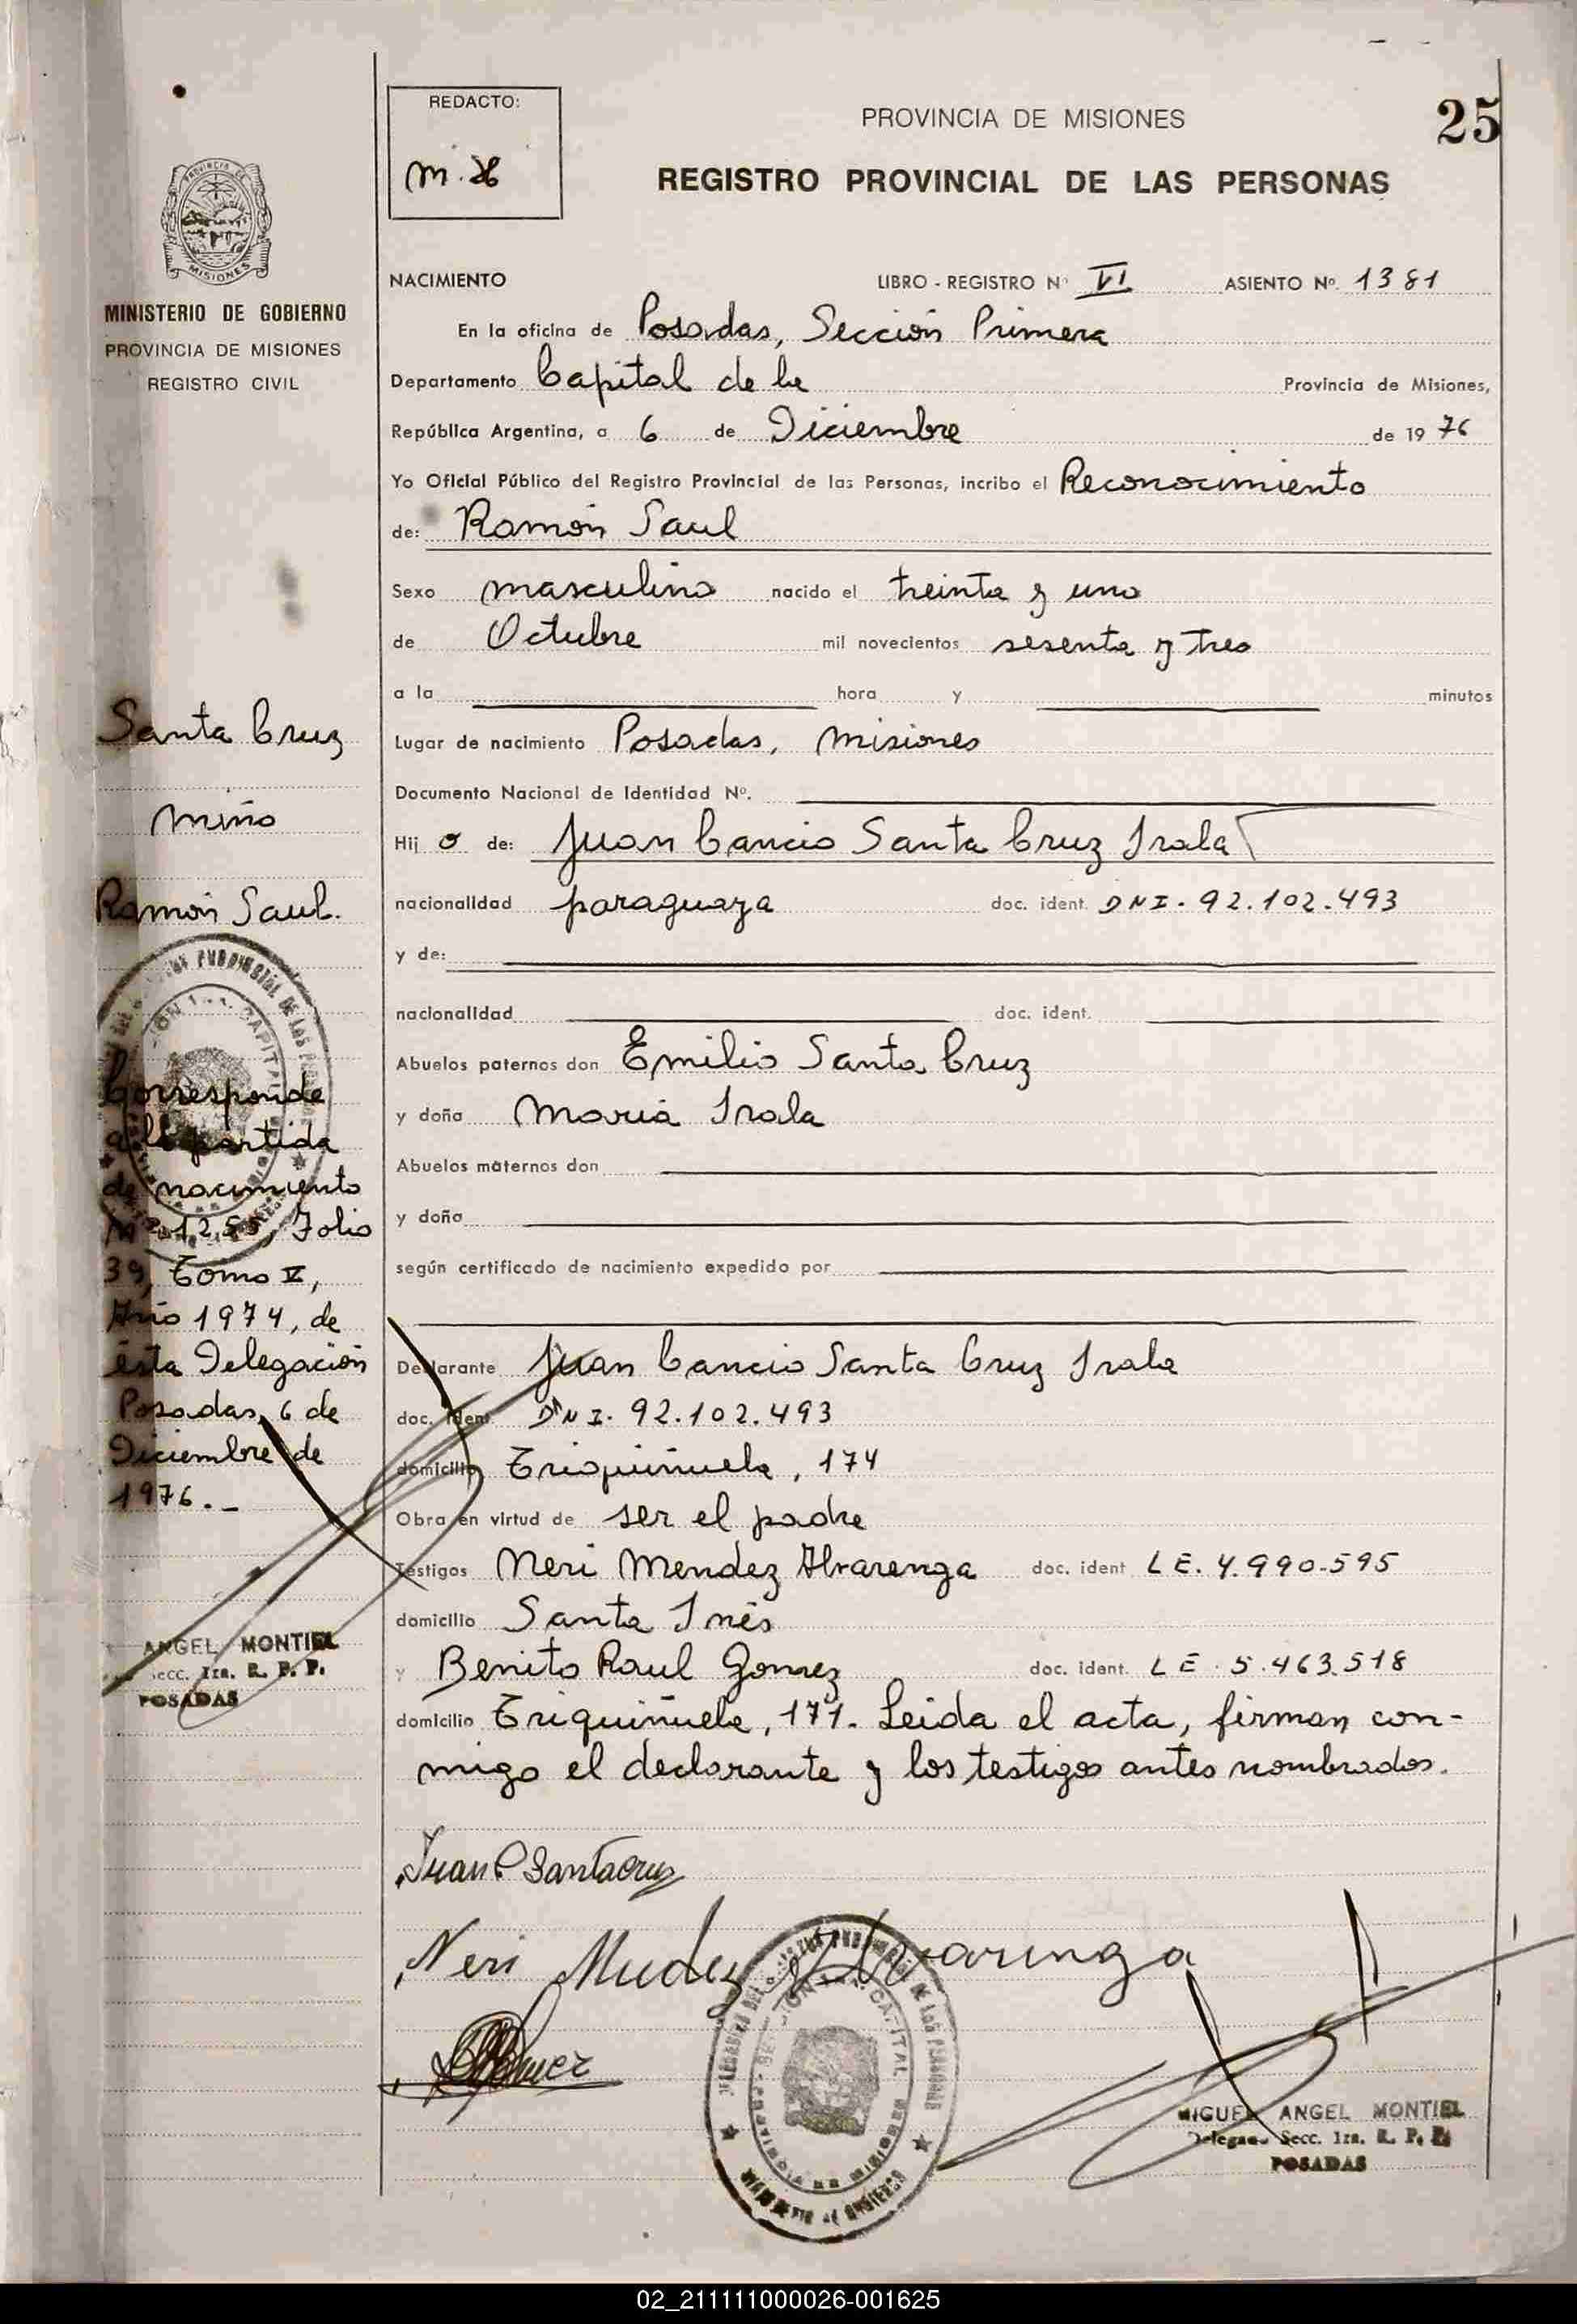 25
REDACTO:
PROVINCIA DE MISIONES
REGISTRO PROVINCIAL DE LAS PERSONAS
PROVINCIA DE
MISIONES
MINISTERIO DE GOBIERNO
PROVINCIA DE MISIONES
REGISTRO CIVIL
NACIMIENTO LIBRO - REGISTRO Nº VI ASIENTO Nº. 1381
En la oficina de Posadas, Sección Primera
Departamento Capital de la Provincia de Misiones,
República Argentina, a 6 de Diciembre de 1976
Yo Oficial Público del Registro Provincial de las Personas, incribo el Reconocimiento
de: Ramón Saul
Sexo masculino nacido el treinta y uno
de Octubre mil novecientos sesenta y tres
a la hora y minutos
Lugar de nacimiento Posadas, Misiones
Documento Nacional de Identidad Nº.
Hij o de: Juan Cancio Santa Cruz Irala
nacionalidad paraguaya doc. ident. DNI. 92.102.493
y de:
nacionalidad doc. ident.
Abuelos paternos don Emilio Santa Cruz
y doña María Irala
Abuelos maternos don
y doña
según certificado de nacimiento expedido por
Declarante Juan Cancio Santa Cruz Irala
doc. ident. DNI. 92.102.493
domicilio Triquiñuela, 174
Obra en virtud de ser el padre
Testigos Neri Mendez Alvarenga doc. ident LE. 4.990.595
domicilio Santa Inés
y Benito Raul Gomez doc. ident. LE. 5.463.518
domicilio Triquiñuela, 171. Leida el acta, firman con-
migo el declarante y los testigos antes nombrados.
Santa Cruz
Miño
Ramón Saul.
Corresponde
a la partida
de nacimiento
Nº 1255, Folio
39, Tomo V,
Año 1974, de
ésta Delegación
Posadas, 6 de
Diciembre de
1976.-
ANGEL MONTIEL
Secc. 1ra. R. P. P.
POSADAS
Juan C Santacruz
Neri Mendez Alvarenga
Gomez
MIGUEL ANGEL MONTIEL
Delegado Secc. 1ra. R. P. P.
POSADAS
02_211111000026-001625